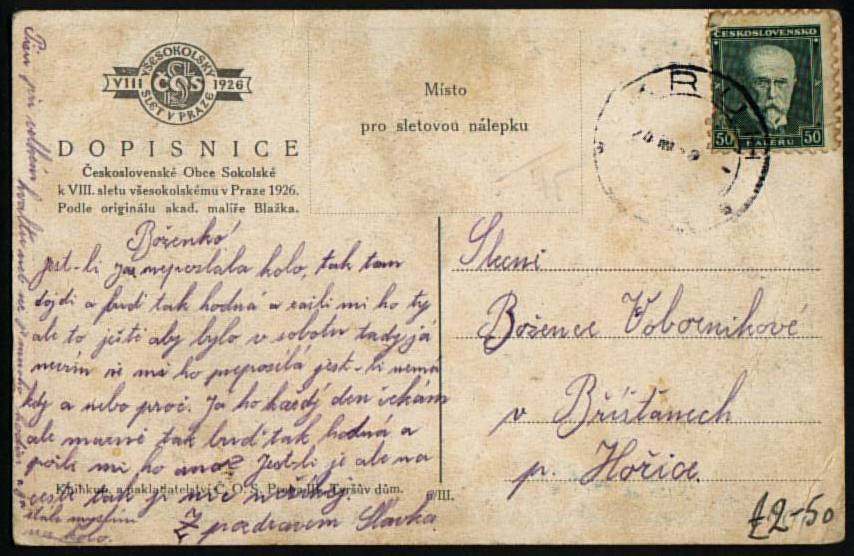 VŠESOKOLSKÝ
VIII ČOS 1926
SLET V PRAZE
DOPISNICE
Československé Obce Sokolské
k VIII. sletu všesokolskému v Praze 1926.
Podle originálu akad. malíře Blažka.
Místo
pro sletovou nálepku
ČESKOSLOVENSKO
50 HALÉŘŮ 50
Boženko!
Jest-li ja neposlala kolo, tak tam
dojdi a buď tak hodná a zašli mi ho ty
ale to ještě aby bylo v sobotu tady já
nevím že mi ho neposílá jest-li nemá
kdy a nebo proč. Já ho každý den čekám
ale marně tak buď tak hodná a
pošli mi ho ano? Jest-li je ale na
cestě tak ji nic neříkej.
Z pozdravem Slávka
Knihkup. a nakladatelství Č. O. S. Praha III. Tyršův dům.
/III.
Slečně
Božence Vobornikové
v Bříšťanech
p. Hořice.
Píši při velkém kvaltu
stále myslím
na kolo.
£2-50